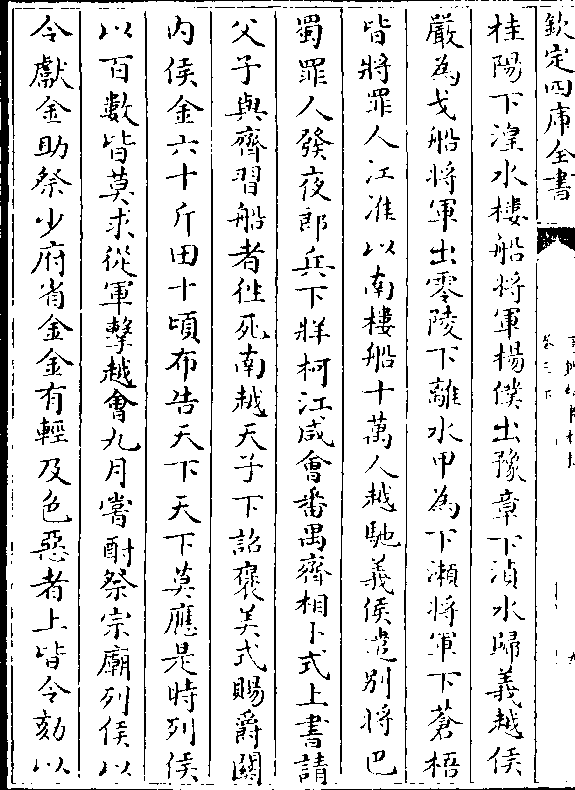 欽定四庫全書
桂陽下湟水樓船將軍楊僕出豫章下湞水歸義越侯
嚴為戈船將軍出零陵下離水甲為下瀬將軍下蒼梧
皆將罪人江淮以南樓船十萬人越馳義侯遣别將巴
蜀罪人發夜郎兵下牂柯江咸會番禺齊相卜式上書請
父子與齊習船者徃死南越天子下詔襃美式賜爵闗
内侯金六十斤田十頃布告天下天下莫應是時列侯
以百數皆莫求從軍擊越會九月嘗酎祭宗廟列侯以
令獻金助祭少府省金金有輕及色惡者上皆令劾以